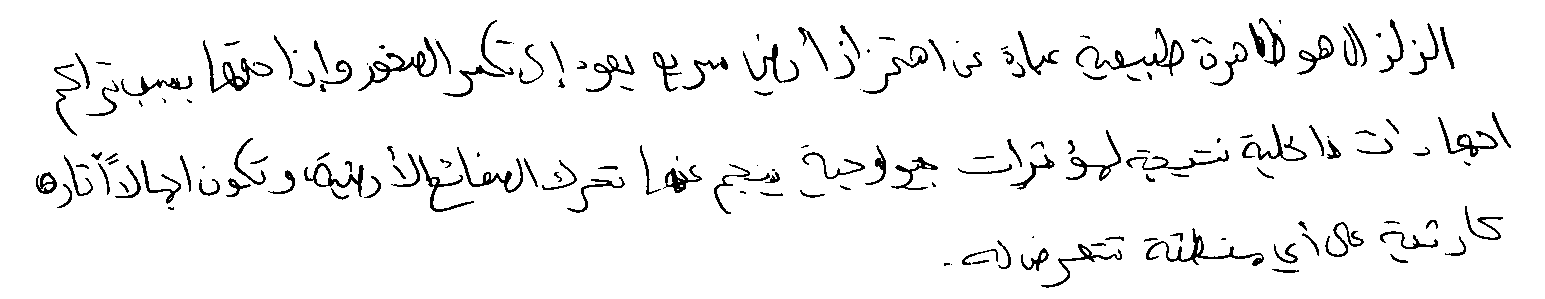 الزلزال هو ظاهرة طبيعية عبارة عن اهتزاز أرضي سريع يعود إلى تكسر الصخور وإزاحتها بسبب تراكم
اجهادات داخلية نتيجة لمؤثرات جيولوجية ينجم عنها تحرك الصفائح الأرضية، وتكون اجمالاً آثاره
كارثية على أي منطقة تتعرض له.